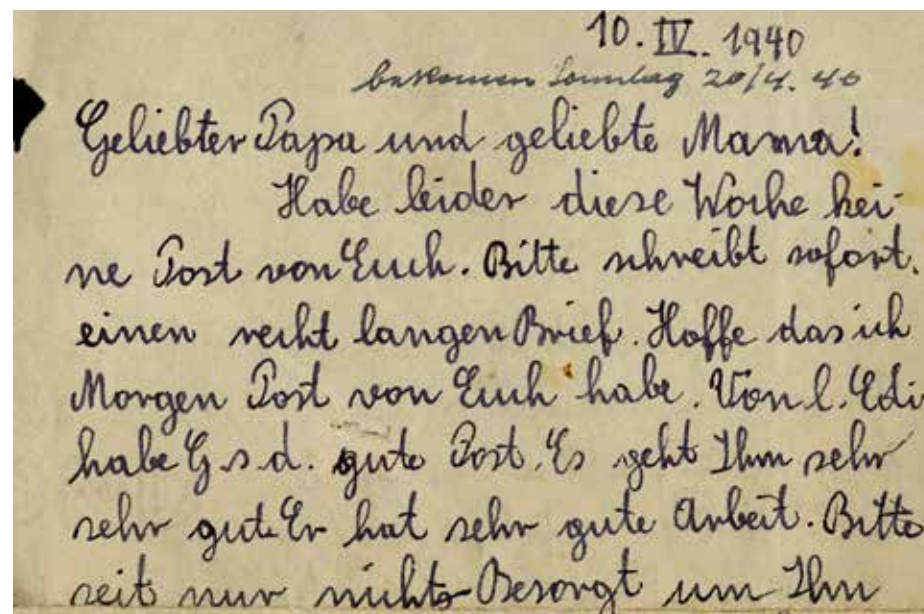 10. IV. 1940
bekomen Sonntag 20/4. 40
Geliebter Papa und geliebte Mama!
Habe leider diese Woche kei-
ne Post von Euch. Bitte schreibt sofort.
einen recht langen Brief. Hoffe das ich
Morgen Post von Euch habe. Von l. Edi
habe G. s. d. gute Post. Es geht Ihm sehr
sehr gut. Er hat sehr gute Arbeit. Bitte
seit nur nichts Besorgt um Ihm